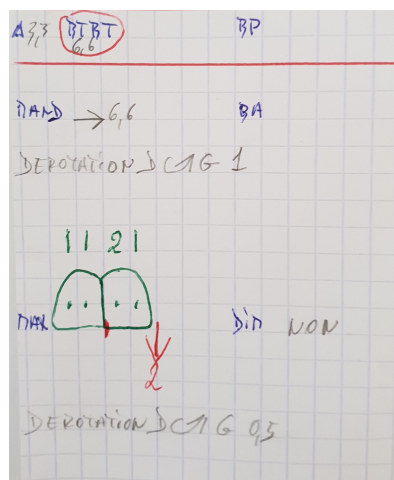 BTBT BP
6,6
MAND → 6,6 BA
DEROTATION D G 1
11 21
MAX DIM NON
2
DEROTATION D G 0,5